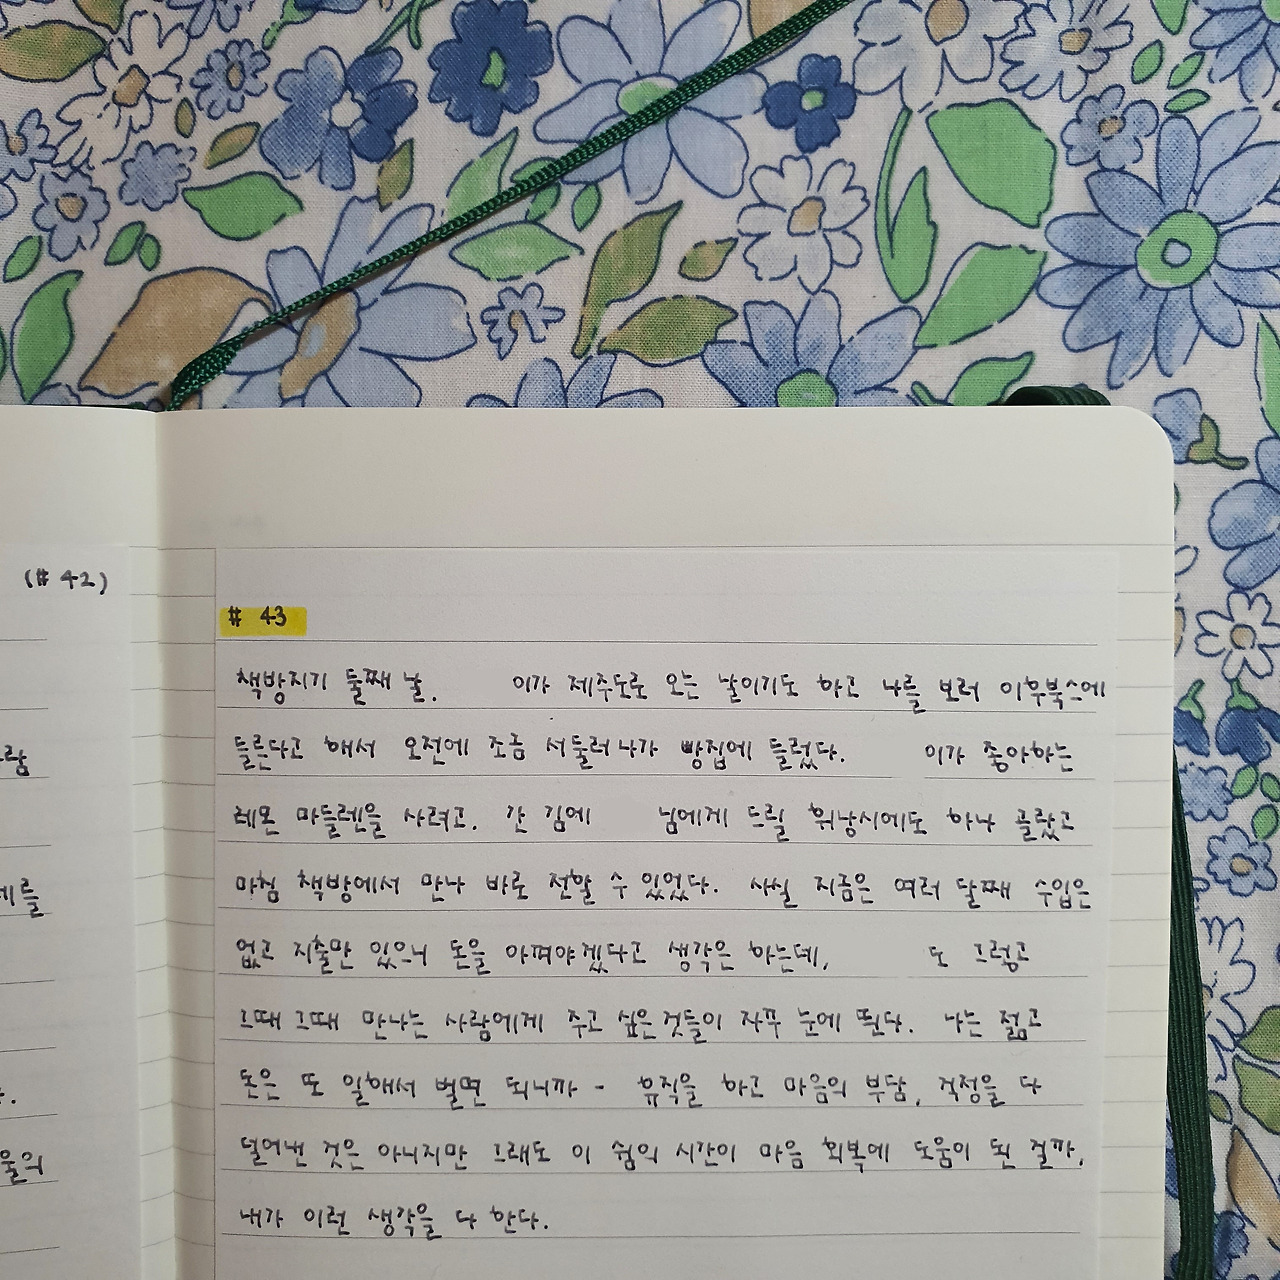 (# 42)
람
네를
.
울의
# 43
책방지기 둘째 날. 이가 제주도로 오는 날이기도 하고 나를 보러 이후북스에
들른다고 해서 오전에 조금 서둘러 나가 빵집에 들렀다. 이가 좋아하는
레몬 마들렌을 사려고. 간 김에 님에게 드릴 휘낭시에도 하나 골랐고
마침 책방에서 만나 바로 전할 수 있었다. 사실 지금은 여러 달째 수입은
없고 지출만 있으니 돈을 아껴야겠다고 생각은 하는데, 도 그렇고
그때 그때 만나는 사람에게 주고 싶은 것들이 자꾸 눈에 띈다. 나는 젊고
돈은 또 일해서 벌면 되니까 - 휴직을 하고 마음의 부담, 걱정을 다
덜어낸 것은 아니지만 그래도 이 쉼의 시간이 마음 회복에 도움이 된 걸까,
내가 이런 생각을 다 한다.